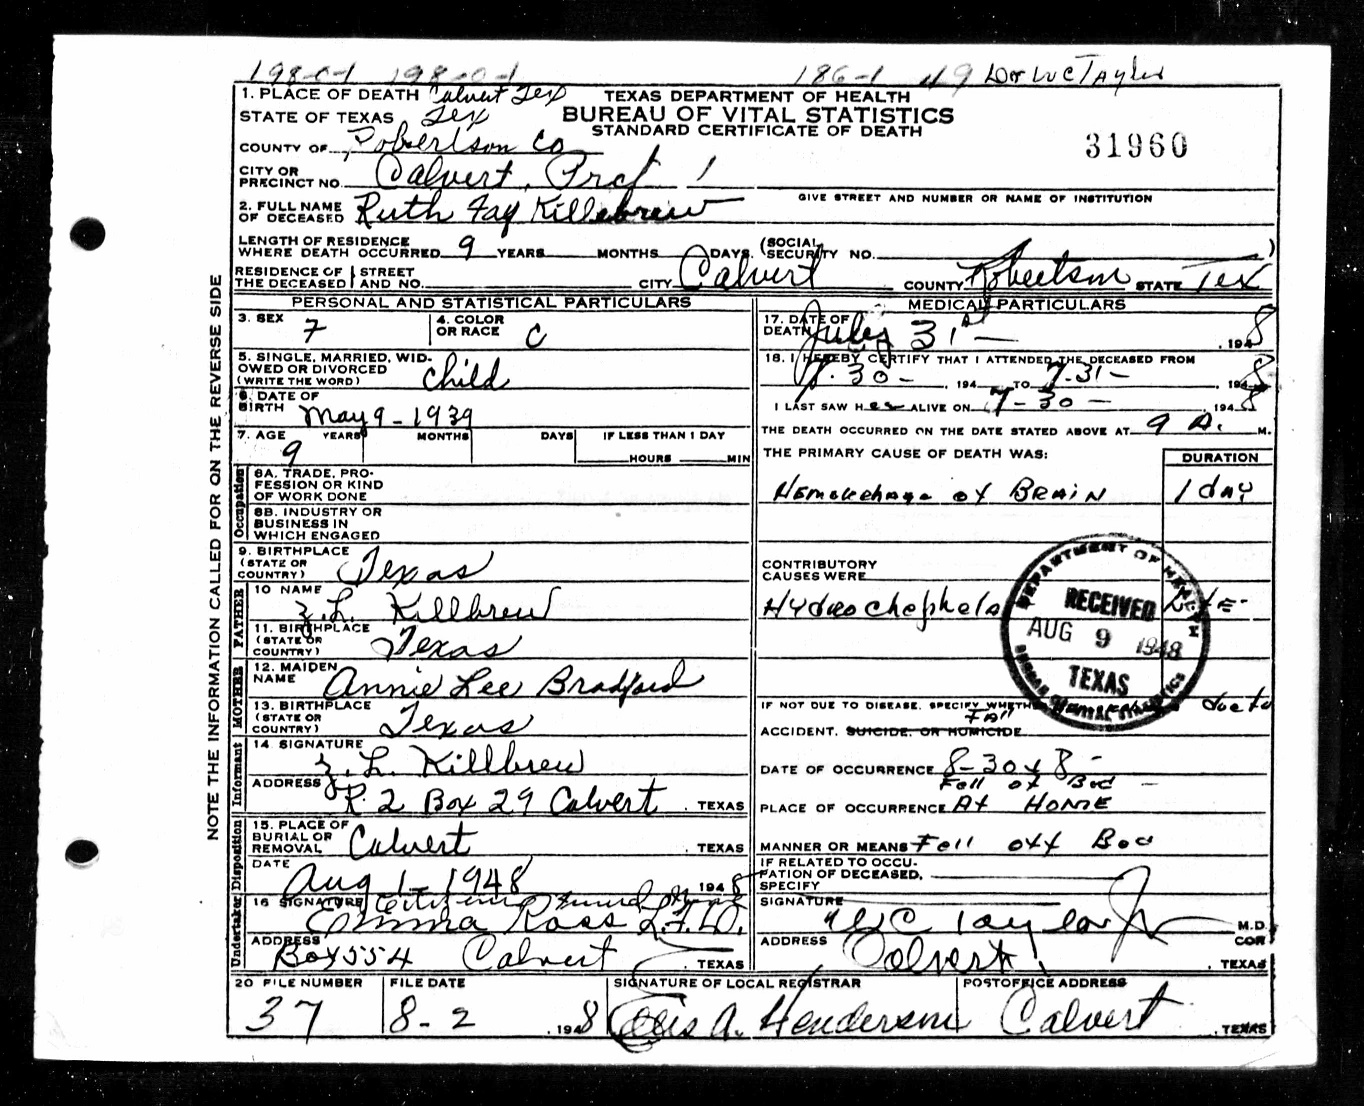 198-C-1 198-0-1 186-1 49 Dr W C Taylor
1. PLACE OF DEATH Calvert Tex
STATE OF TEXAS Tex
COUNTY OF Robertson Co
CITY OR PRECINCT NO. Calvert, Prct 1
TEXAS DEPARTMENT OF HEALTH
BUREAU OF VITAL STATISTICS
STANDARD CERTIFICATE OF DEATH
31960
GIVE STREET AND NUMBER OR NAME OF INSTITUTION
2. FULL NAME OF DECEASED Ruth Fay Killebrew
LENGTH OF RESIDENCE WHERE DEATH OCCURRED 9 YEARS MONTHS DAYS. (SOCIAL SECURITY NO. )
RESIDENCE OF THE DECEASED STREET AND NO. CITY Calvert COUNTY Robertson STATE Tex
PERSONAL AND STATISTICAL PARTICULARS
3. SEX F 4. COLOR OR RACE C
5. SINGLE, MARRIED, WIDOWED OR DIVORCED (WRITE THE WORD) child
6. DATE OF BIRTH May 9-1939
7. AGE YEARS MONTHS DAYS IF LESS THAN 1 DAY
9 HOURS MIN
Occupation
8A. TRADE, PROFESSION OR KIND OF WORK DONE
8B. INDUSTRY OR BUSINESS IN WHICH ENGAGED
9. BIRTHPLACE (STATE OR COUNTRY) Texas
FATHER
10 NAME Z. L. Killbrew
11. BIRTHPLACE (STATE OR COUNTRY) Texas
MOTHER
12. MAIDEN NAME Annie Lee Bradford
13. BIRTHPLACE (STATE OR COUNTRY) Texas
Informant
14 SIGNATURE Z. L. Killbrew
ADDRESS R. 2 Box 29 Calvert . TEXAS
Disposition
15. PLACE OF BURIAL OR REMOVAL Calvert . TEXAS
DATE Aug 1-1948 194 8
Undertaker
16 SIGNATURE Citizens Funeral Home
Emma Ross L.F.D.
ADDRESS Box 554 Calvert . TEXAS
MEDICAL PARTICULARS
17. DATE OF DEATH July 31st — , 194 8
18. I HEREBY CERTIFY THAT I ATTENDED THE DECEASED FROM
7-30- , 194 TO 7-31- , 194 8
I LAST SAW Her ALIVE ON 7-30- 194 8
THE DEATH OCCURRED ON THE DATE STATED ABOVE AT 9 A. M.
THE PRIMARY CAUSE OF DEATH WAS: DURATION
Hemorehage of BRAIN 1 day
CONTRIBUTORY CAUSES WERE
Hydro Chephela
DEPARTMENT OF HEALTH
RECEIVED
AUG 9 1948
TEXAS
IF NOT DUE TO DISEASE, SPECIFY WHETHER due to
ACCIDENT, SUICIDE, OR HOMICIDE Fall
DATE OF OCCURRENCE 8-30x8-
Fell of Bed —
PLACE OF OCCURRENCE At HOME
MANNER OR MEANS Fell off Bed
IF RELATED TO OCCUPATION OF DECEASED, SPECIFY
SIGNATURE W C Taylor Jr M.D. COR.
ADDRESS Calvert . TEXAS
20 FILE NUMBER 37
FILE DATE 8-2 , 194 8
SIGNATURE OF LOCAL REGISTRAR A. Henderson
POSTOFFICE ADDRESS Calvert . TEXAS
NOTE THE INFORMATION CALLED FOR ON THE REVERSE SIDE